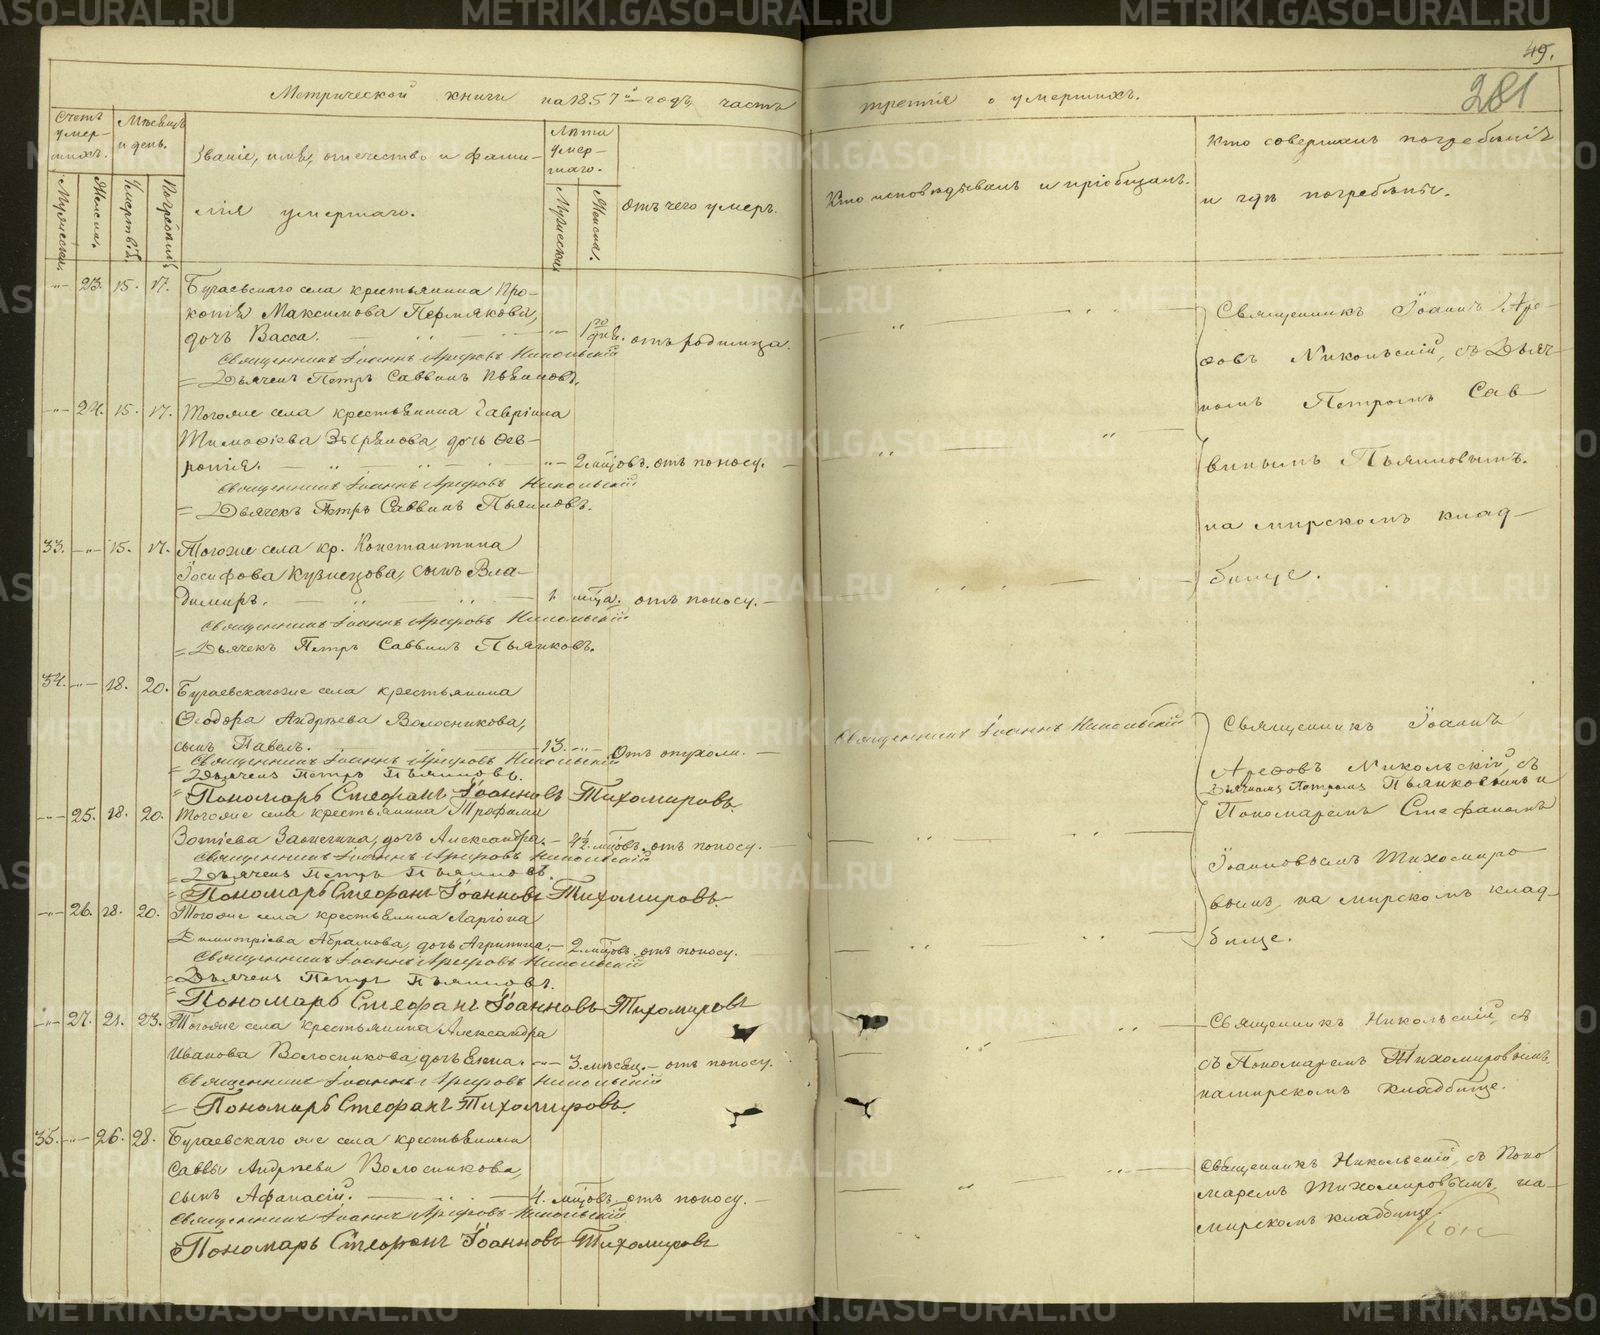 49.
281
Метрической книги на 1857й годъ, часть третія о умершихъ.
Счетъ умер-
шихъ.
Мѣсяцъ
и день.
Званіе, имя, отчество и фами-
лія умершаго.
Лѣта
умер-
шаго.
Отъ чего умеръ.
Кто исповѣдывалъ и пріобщалъ.
Кто совершалъ погребеніе
и гдѣ погребены.
Мужескій.
Женскій.
Смерти.
Погребенія.
Мужеской
Женска.
23. 15. 17. Бугаевскаго села крестьянина Про-
копія Максимова Пермякова,
дочь Васса. 1го дня. отъ родимца.
Священникъ Іоаннъ Арефовъ Никольскій
Дьячекъ Петръ Саввинъ Пьянковъ.
24. 15. 17. Тогоже села крестьянина Гавріила
Тимофіева Звѣрякова, дочь Фев-
ронія. 2 мцовъ. отъ поносу.
Священникъ Іоаннъ Арефовъ Никольскій
Дьячекъ Петръ Саввинъ Пьянковъ.
33. 15. 17. Тогоже села кр. Константина
Іосифова Кузнецова, сынъ Вла-
димиръ. 1. мца. отъ поносу.
Священникъ Іоаннъ Арефовъ Никольскій
Дьячекъ Петръ Саввинъ Пьянковъ.
34. 18. 20. Бугаевскагоже села крестьянина
Ѳеодора Андрѣева Волосникова,
сынъ Павелъ. 13. Отъ опухоли.
Священникъ Іоаннъ Арефовъ Никольскій
Дьячекъ Петръ Пьянковъ.
Пономарь Стефанъ Іоанновъ Тихомировъ
25. 18. 20. Тогоже села крестьянина Трофима
Зотіева дочь Александра. 4½ мцовъ. отъ поносу.
Священникъ Іоаннъ Арефовъ Никольскій
Дьячекъ Петръ Пьянковъ.
Пономарь Стефанъ Іоанновъ Тихомировъ.
26. 18. 20. Тогоже села крестьянина Ларіона
Димитріева Абрамова, дочь Агрипина. 2 мцовъ. отъ поносу.
Священникъ Іоаннъ Арефовъ Никольскій
Дьячекъ Петръ Пьянковъ.
Пономарь Стефанъ Іоанновъ Тихомировъ
27. 21. 23. Тогоже села крестьянина Александра
Иванова Волосникова, дочь Елена. 3. мѣсяц. отъ поносу.
Священникъ Іоаннъ Арефовъ Никольскій
Пономарь Стефанъ Тихомировъ.
35. 26. 28. Бугаевскаго же села крестьянина
Саввы Андрѣева Волосникова,
сынъ Афанасій. 4. мцовъ. отъ поносу.
Священникъ Іоаннъ Арефовъ Никольскій
Пономарь Стефанъ Іоанновъ Тихомировъ
Священникъ Іоаннъ Никольскій
Священникъ Іоаннъ Аре-
фовъ Никольскій, съ Дьяч-
комъ Петромъ Сав
винымъ Пьянковымъ.
на мирскомъ клад-
бище.
Священникъ Іоаннъ
Арефовъ Никольскій, съ
Дьячкомъ Петромъ Пьянковымъ и
Пономаремъ Стефаномъ
Іоанновымъ Тихомиро
вымъ, на мирскомъ клад-
бище.
Священникъ Никольскій, съ
съ Пономаремъ Тихомировымъ.
на мирскомъ кладбище.
Священникъ Никольскій, съ Поно
маремъ Тихомировымъ, на-
мирскомъ кладбище.
METRIKI.GASO-URAL.RU